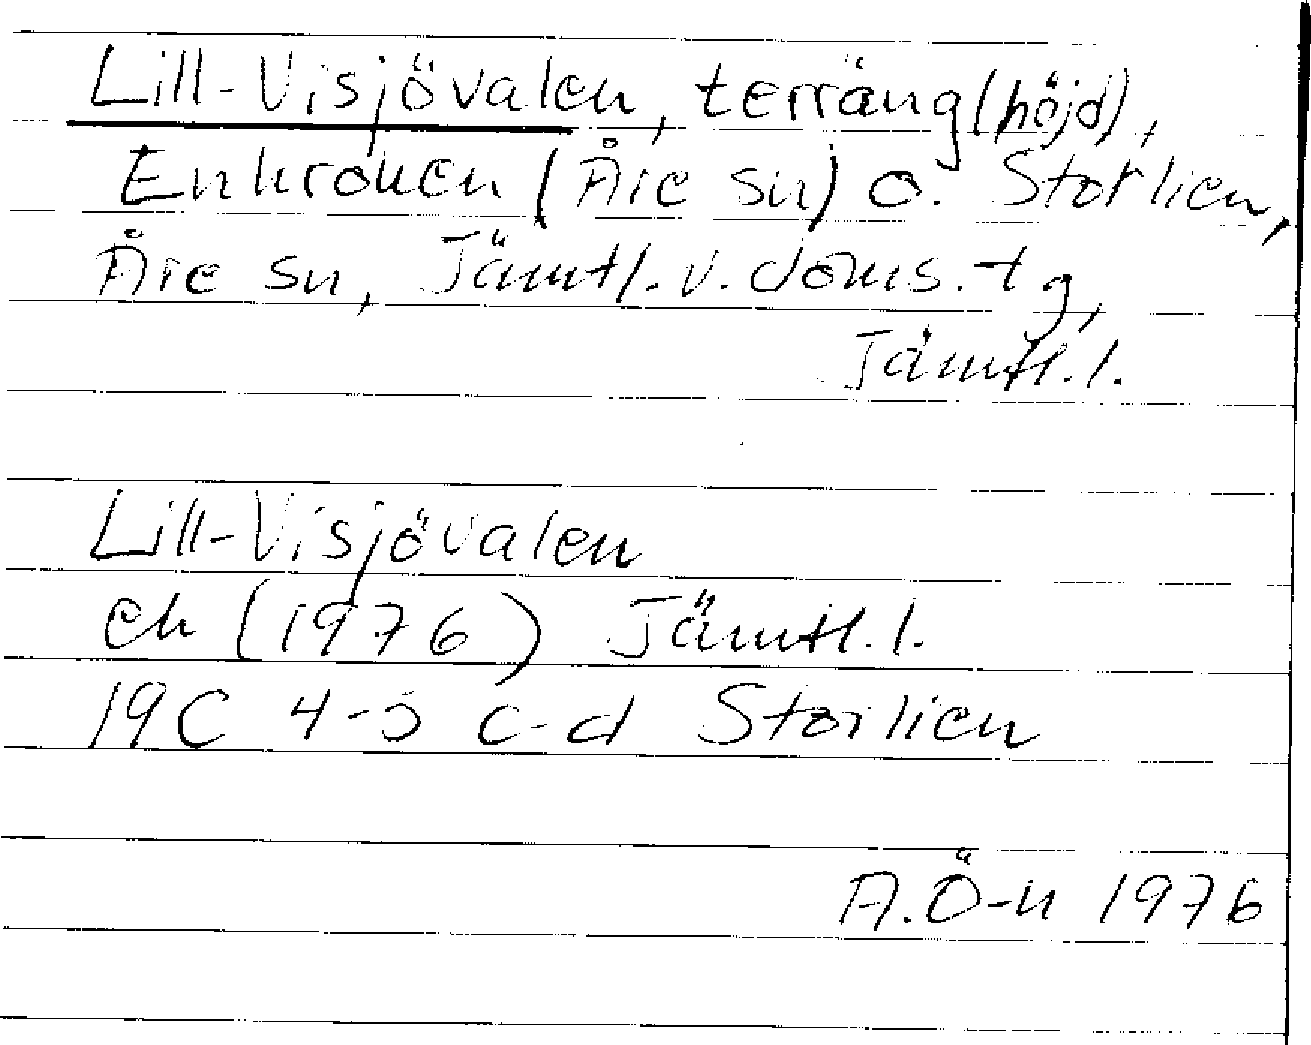 Lill-Visjövalen, terräng(höjd),
Enkroken (Åre sn) o. Storlien,
Åre sn, Jämtl. v. doms. tg,
Jämtl. l.
Lill-Visjövalen
ek (1976) Jämtl. l.
19C 4-5 c-d Storlien
A.Ö-n 1976